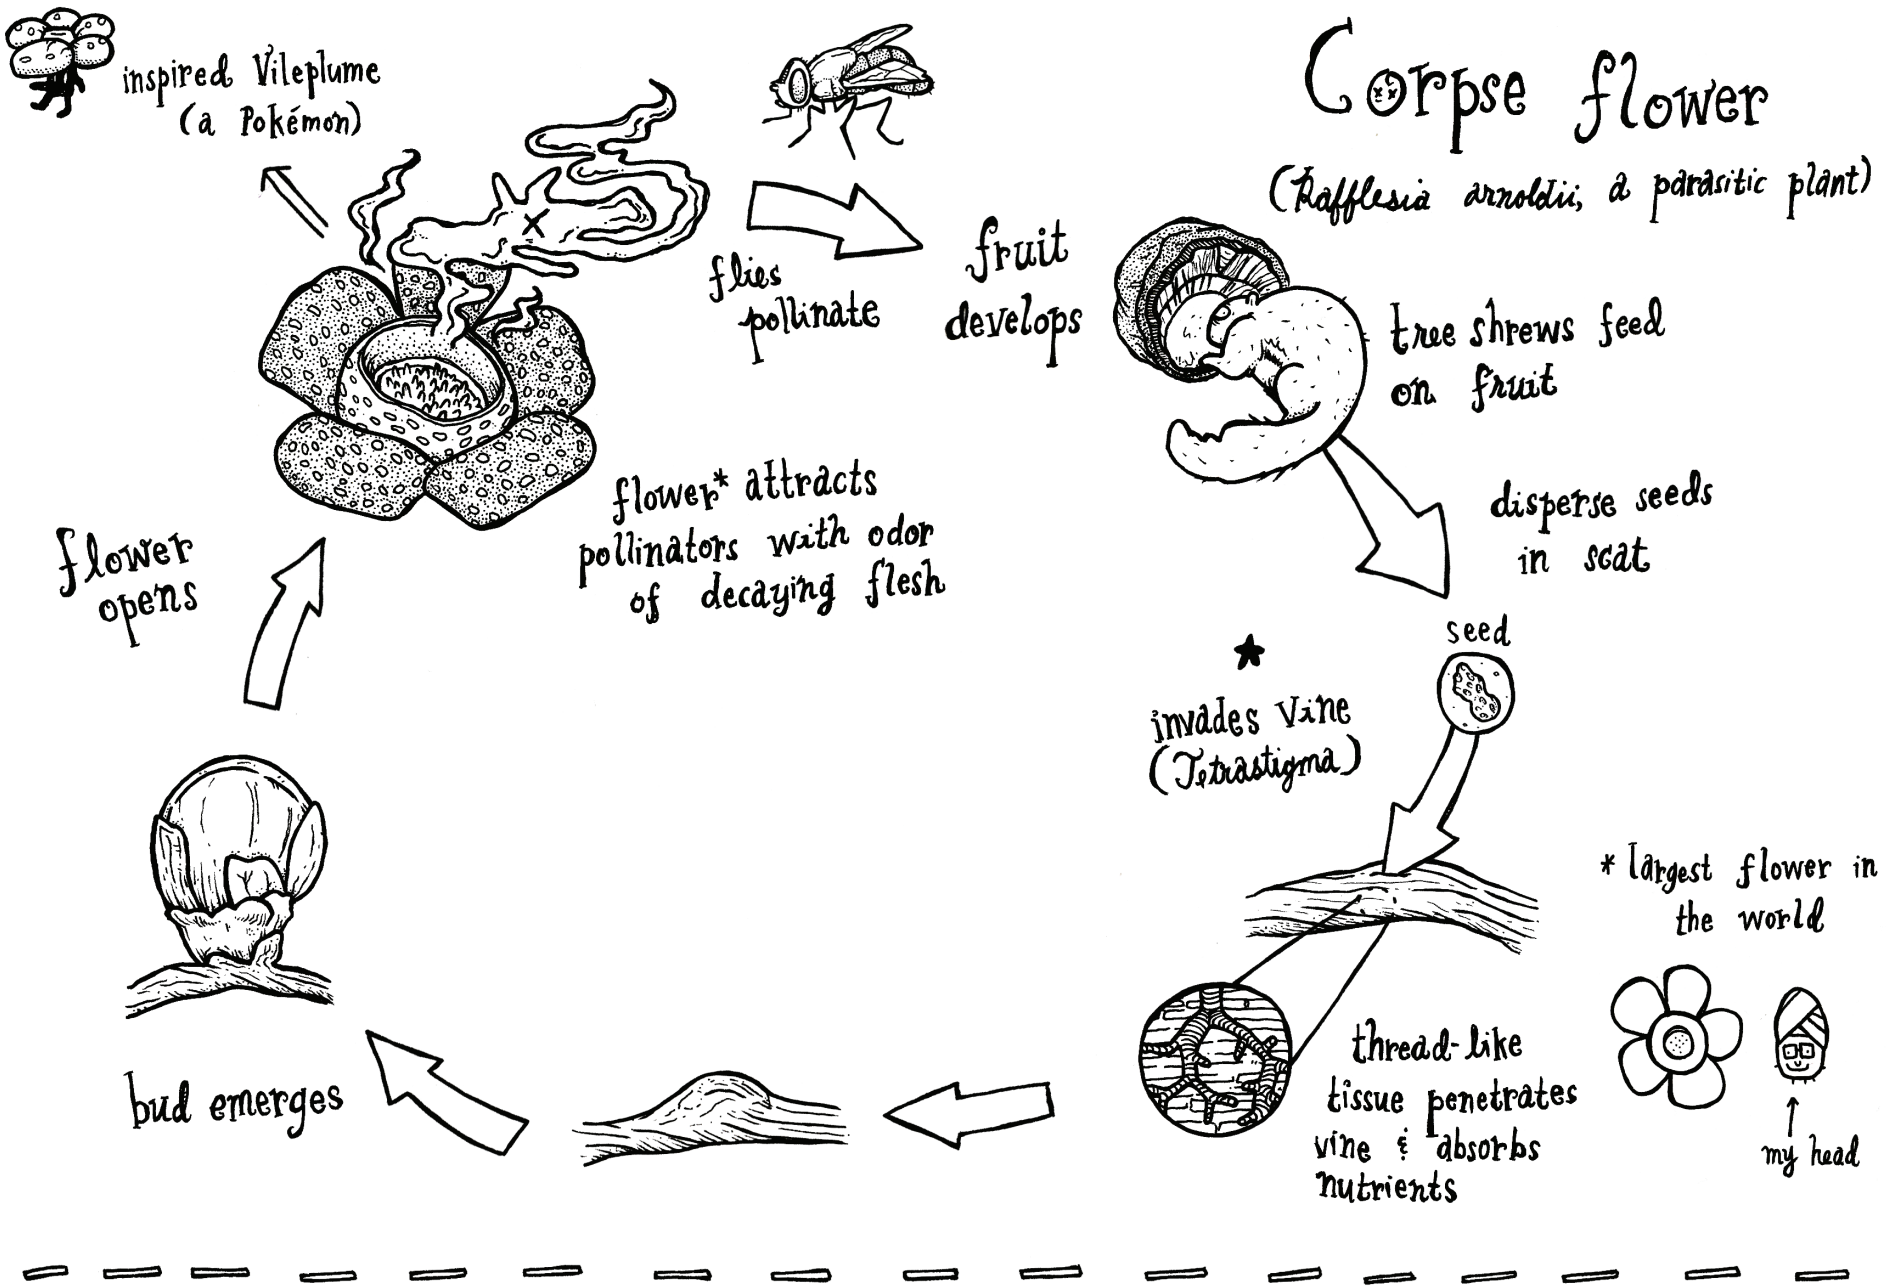 Corpse flower
(Rafflesia arnoldii, a parasitic plant)
inspired Vileplume
(a Pokémon)
flies
pollinate
fruit
develops
tree shrews feed
on fruit
disperse seeds
in scat
seed
★
invades vine
(Tetrastigma)
thread-like
tissue penetrates
vine & absorbs
nutrients
bud emerges
flower
opens
flower* attracts
pollinators with odor
of decaying flesh
* largest flower in
the world
my head